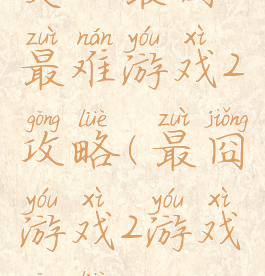 zuì nán yóu xì
最难游戏2
gōng lüè zuì jiǒng
攻略(最囧
yóu xì yóu xì
游戏2游戏